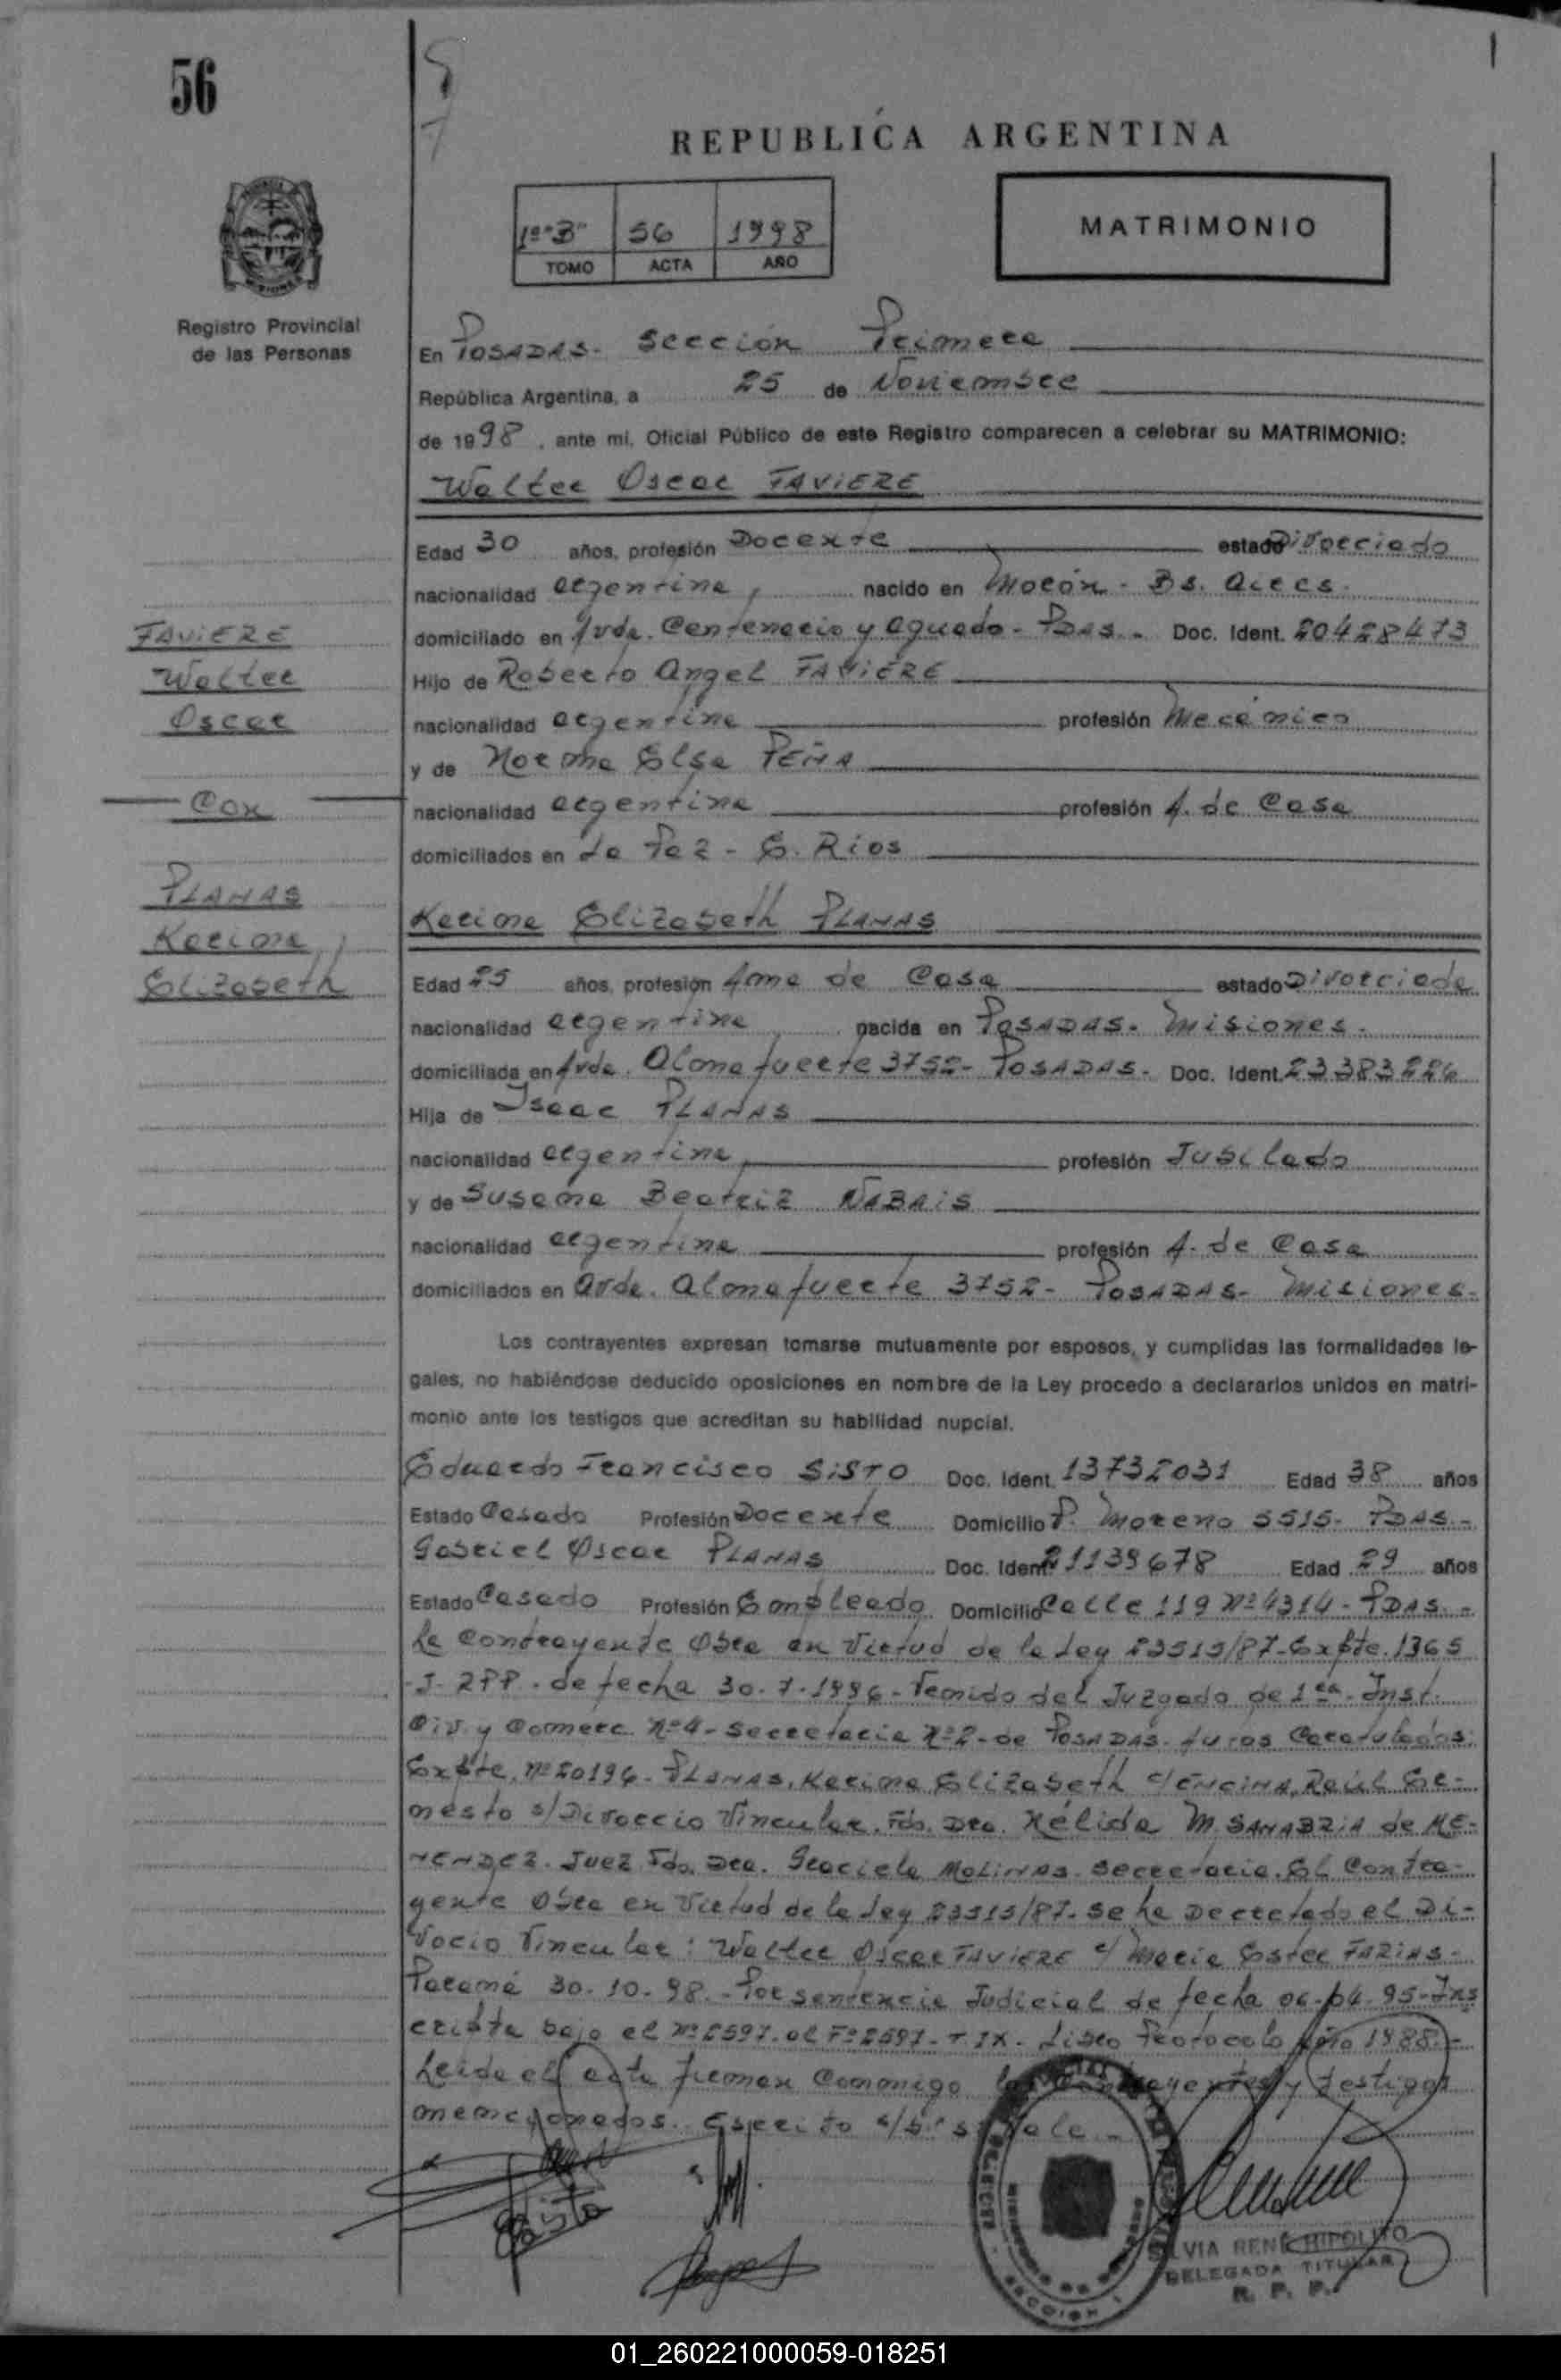 56
REPUBLICA ARGENTINA
1º "B" 56 1998
TOMO ACTA AÑO
MATRIMONIO
Registro Provincial
de las Personas
En POSADAS. Sección Primera
República Argentina, a 25 de Noviembre
de 1998, ante mi, Oficial Público de este Registro comparecen a celebrar su MATRIMONIO:
Walter Oscar FAVIERE
Edad 30 años, profesión Docente estado Divorciado
nacionalidad argentina, nacido en Morón - Bs. Aires.
domiciliado en Avda. Centenario y Aguado - Pdas. - Doc. Ident. 20428473
Hijo de Roberto Angel FAVIERE
nacionalidad argentina profesión Mecánico
y de Norma Elsa PEÑA
nacionalidad argentina profesión A. de Casa
domiciliados en La Paz - E. Rios
FAVIERE
Walter
Oscar
Con
PLANAS
Karina
Elizabeth
Karina Elizabeth PLANAS
Edad 25 años, profesión Ama de Casa estado Divorciada
nacionalidad argentina nacida en POSADAS. Misiones.
domiciliada en Avda. Almafuerte 3752 - POSADAS. Doc. Ident. 23383226
Hija de Isaac PLANAS
nacionalidad argentina profesión Jubilado
y de Susana Beatriz NABAIS
nacionalidad argentina profesión A. de Casa
domiciliados en Avda. Almafuerte 3752 - POSADAS - Misiones.
Los contrayentes expresan tomarse mutuamente por esposos, y cumplidas las formalidades le-
gales, no habiéndose deducido oposiciones en nombre de la Ley procedo a declararlos unidos en matri-
monio ante los testigos que acreditan su habilidad nupcial.
Eduardo Francisco SISTO Doc. Ident. 13732031 Edad 38 años
Estado Casado Profesión Docente Domicilio P. Moreno 5515 - PDAS. -
Gabriel Oscar PLANAS Doc. Ident. 21139678 Edad 29 años
Estado Casado Profesión Empleado Domicilio Calle 119 Nº 4314 - PDAS. -
La Contrayente Obra en Virtud de la Ley 23515/87 - Expte. 1365
- J - 2PP. de fecha 30 - 7 - 1996 - Venido del Juzgado de 1era. Inst.
Civ. y Comerc. Nº 4 - Secretaria Nº 2 - de POSADAS. Autos Caratulados:
Expte. Nº 20196 - PLANAS, Karina Elizabeth c/ ENCINA, Raúl Er-
nesto s/ Divorcio Vincular. Fdo. Dra. Nélida M. SANABRIA de ME-
NENDEZ. Juez Fdo. Dra. Graciela MOLINAS. Secretaria. El Contra-
yente Obra en Virtud de la Ley 23515/87. Se ha Decretado el Di-
vocio Vincular: Walter Oscar FAVIERE c/ Maria Ester FARIAS -
Paraná 30 - 10 - 98. - Por sentencia Judicial de fecha 06 - 04 - 95 - Ins
cripta bajo el Nº 2597 al Fº 2597 - T IX. Libro Protocolo Año 1988. -
Leida el acta firman Conmigo los Contrayentes y testigos
mencionados. Escrito s/ Vale. -
Sisto
SILVIA RENÉ HIPOLITO
DELEGADA TITULAR
R. P. P.
01_260221000059-018251